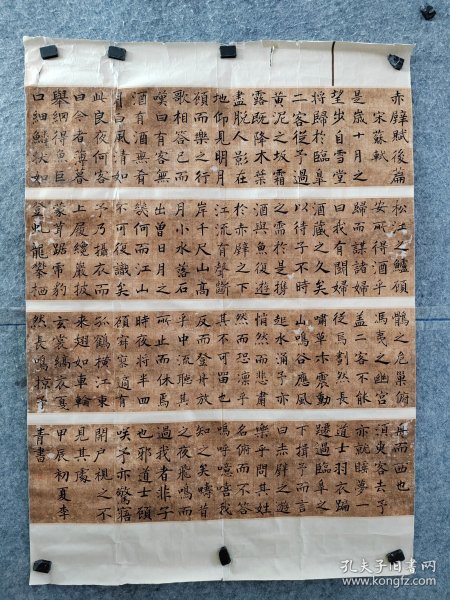 赤壁賦後篇
宋蘇軾
是歲十月之
望步自雪堂
將歸於臨皋
二客從予過
黃泥之坂霜
露既降木葉
盡脫人影在
地仰見明月
顧而樂之行
歌相答已而
嘆曰有客無
酒有酒無肴
月白風清如
此良夜何客
曰今者薄暮
舉網得魚巨
口細鱗狀如
松江之鱸顧
安所得酒乎
歸而謀諸婦
曰我有鬭婦
酒藏之久矣
以待子不時
之需於是攜
酒與魚復遊
於赤壁之下
江流有聲斷
岸千尺山高
月小水落石
出曾日月之
幾何而江山
不可復識矣
予乃攝衣而
上履巉巖披
蒙茸踞虎豹
登虬龍攀栖
鶻之危巢俯
馮夷之幽宮
蓋二客不能
從焉劃然長
嘯草木震動
山鳴谷應風
起水涌予亦
悄然而悲肅
然而恐凜乎
其不可留也
反而登舟放
乎中流聽其
所止而休焉
時夜將半四
顧寂寥適有
孤鶴橫江東
來翅如車輪
玄裳縞衣戛
然長鳴掠予
舟而西也
須臾客去予
亦就睡夢一
道士羽衣蹁
躚過臨皋之
下揖予而言
曰赤壁之遊
樂乎問其姓
名俯而不答
嗚呼噫嘻我
知之矣疇昔
之夜飛鳴而
過我者非子
也邪道士顧
笑予亦驚寤
開戶視之不
見其處
甲辰初夏李
青書
孔夫子旧书网
www.kongfz.com